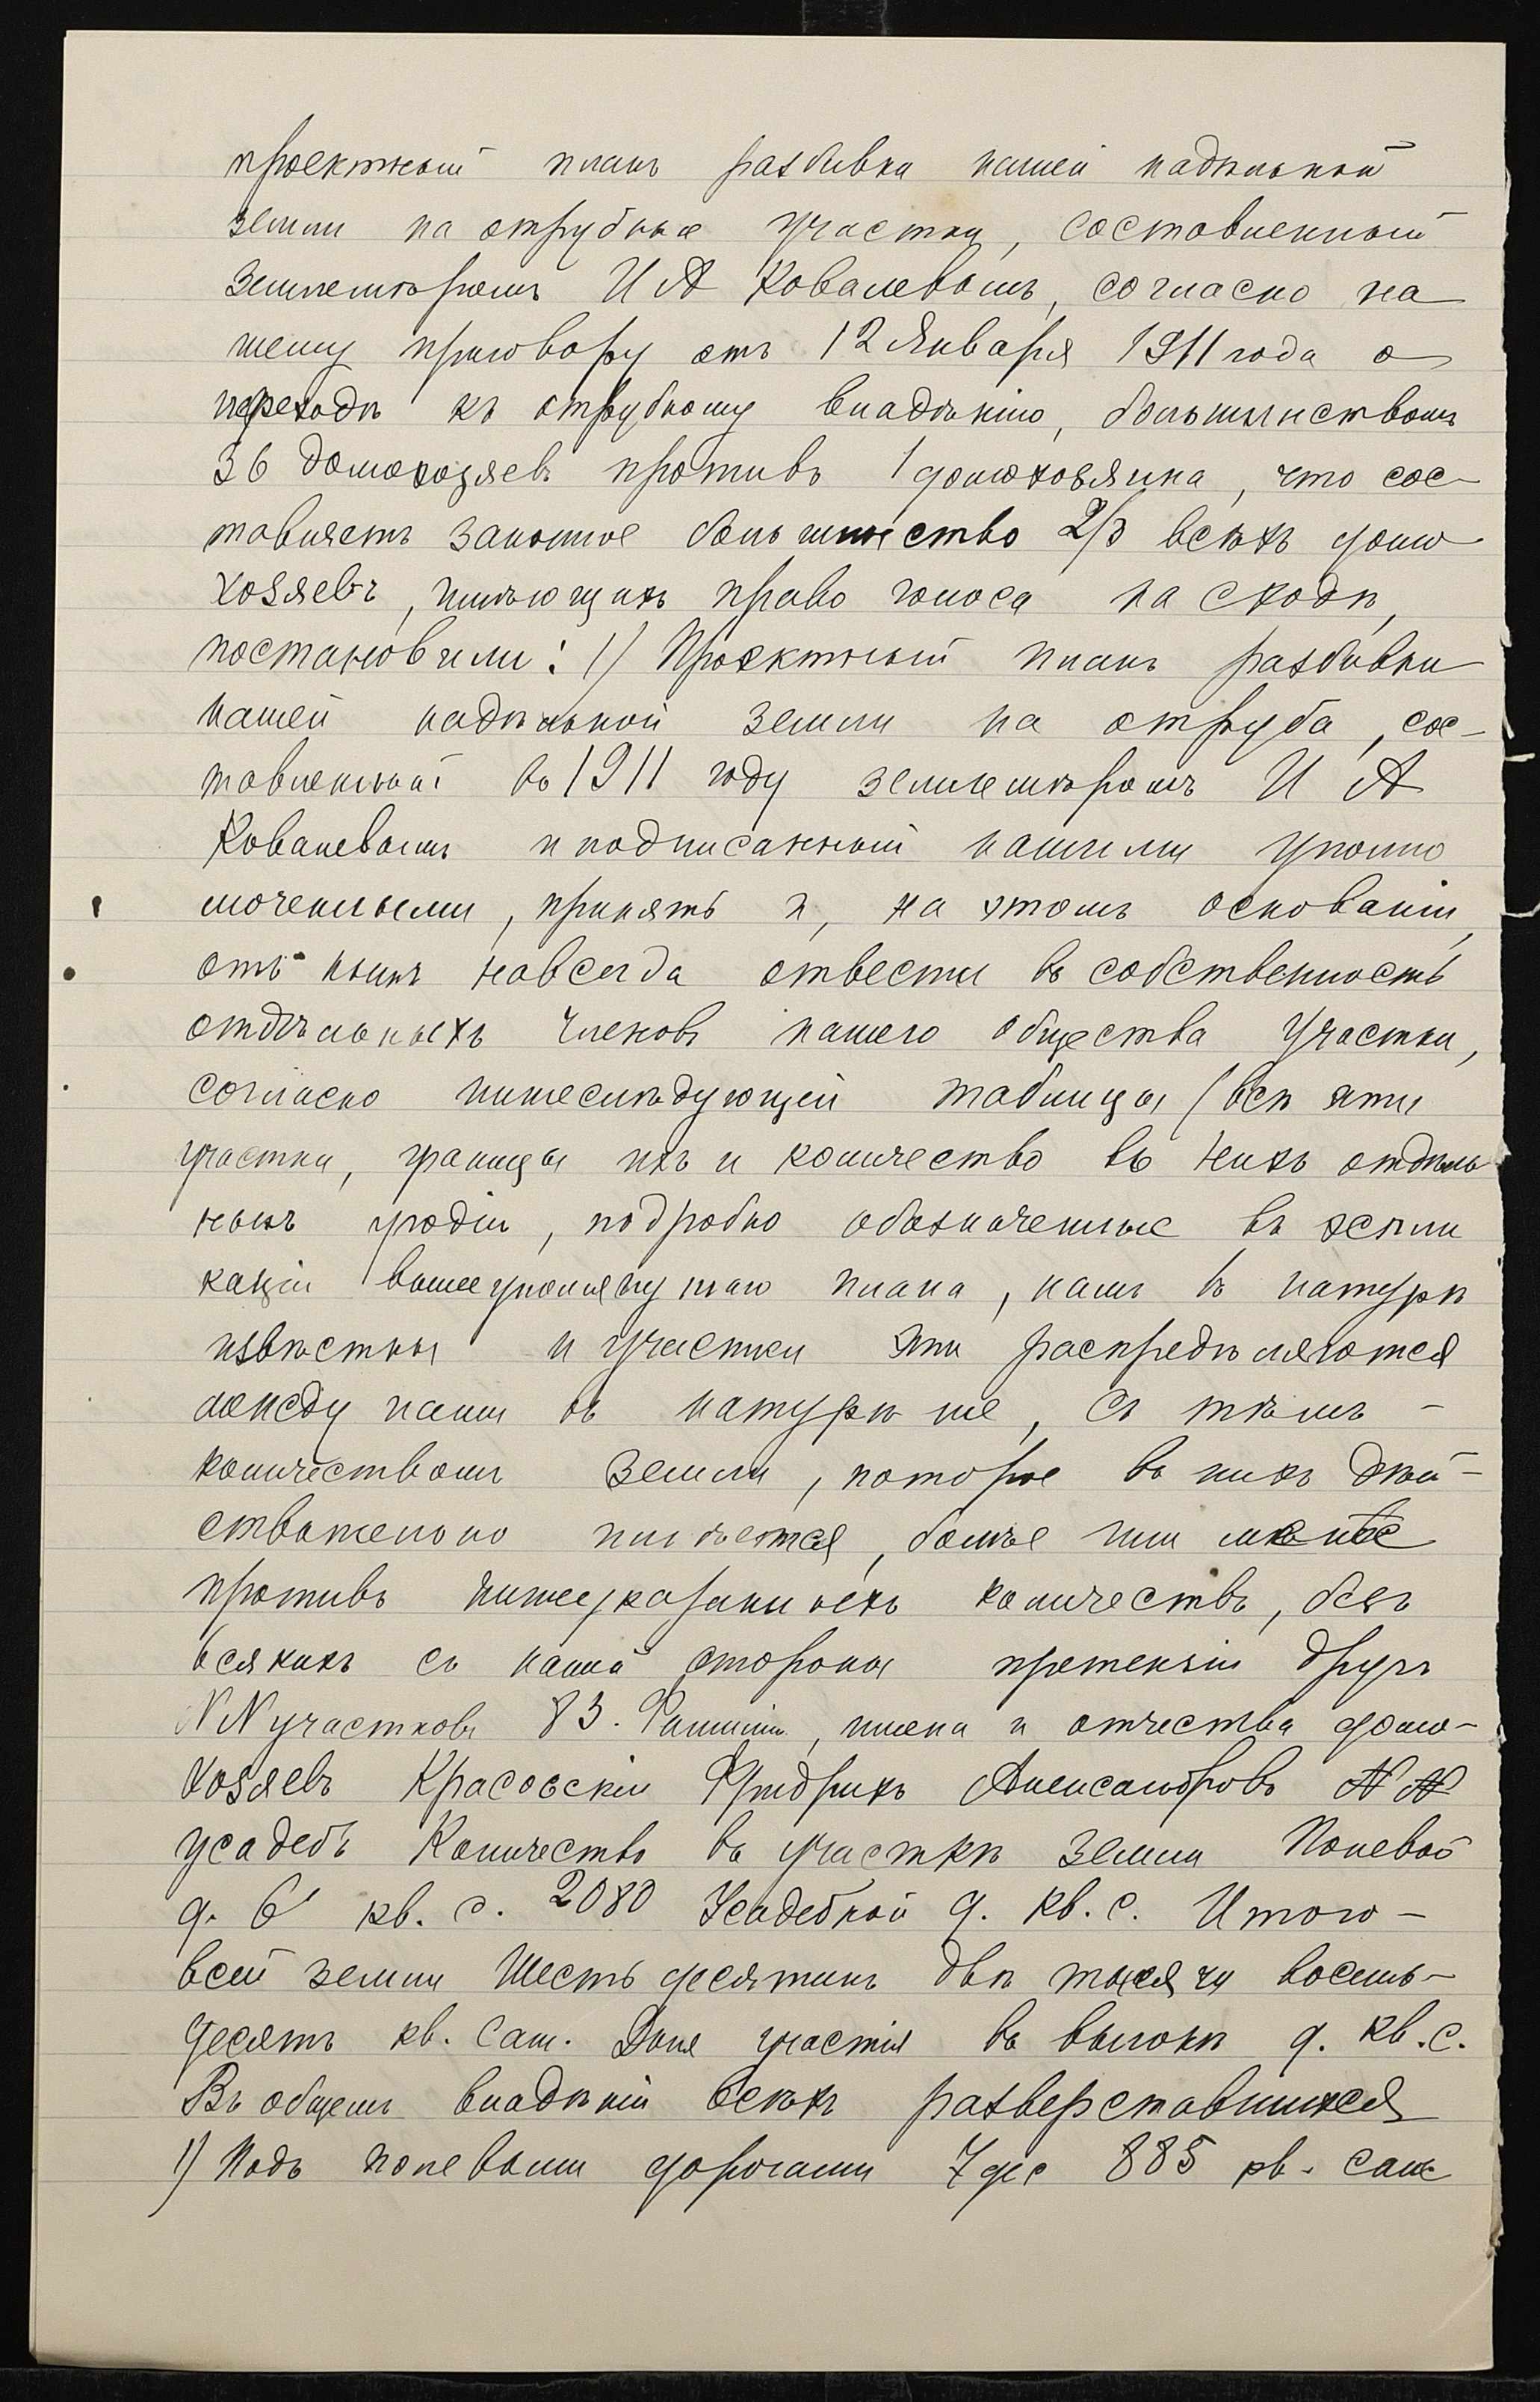 проектный планъ разбивки нашей надѣльной
земли на отрубные участки, составленный
землемѣромъ И А Ковалевымъ, согласно на
шему приговору отъ 12 Января 1911 года о
переходѣ къ отрубному владѣнію, большинствомъ
36 домохозяевъ противъ 1 домохозяина, что сос-
тавляетъ законное большинство 2/3 всѣхъ домо
хозяевъ, имѣющихъ право голоса на сходѣ,
постановили: 1) Проектный планъ разбивки
нашей надѣльной земли на отруба, сос-
тавленный въ 1911 году землемѣромъ И А
Ковалевымъ и подписанный нашими уполно
моченными, принять и, на этомъ основаніи,
отъ нынѣ навсегда отвести въ собственность
отдѣльныхъ членовъ нашего общества участки,
согласно нижеслѣдующей таблицы (всѣ эти
участки, границы ихъ и количество въ нихъ отдѣль
ныхъ угодій, подробно обозначенные въ экспли
каціи вышеупомянутаго плана, намъ въ натурѣ
извѣстны и участки эти распредѣляются
между нами въ натурѣ же, съ тѣмъ -
количествомъ земли, которое въ нихъ дѣй-
ствительно имѣется, болѣе или менѣе
противъ нижеуказанныхъ количествъ, безъ
всякихъ съ нашей стороны претензій другъ
NN участковъ 83. Фамиліи, имена и отчества домо-
хозяевъ Красовскій Фридрихъ Александровъ NN
усадебъ Количество въ участкѣ земли Полевой
д. 6 кв. с. 2080 Усадебной д. кв. с. Итого -
всей земли Шесть десятинъ двѣ тысячи восемь-
десятъ кв. саж. Доля участія въ выгонѣ д. кв. с.
Въ общемъ владѣніи всѣхъ разверставшихся
1) Подъ полевыми дорогами 7 дес 885 кв. саж